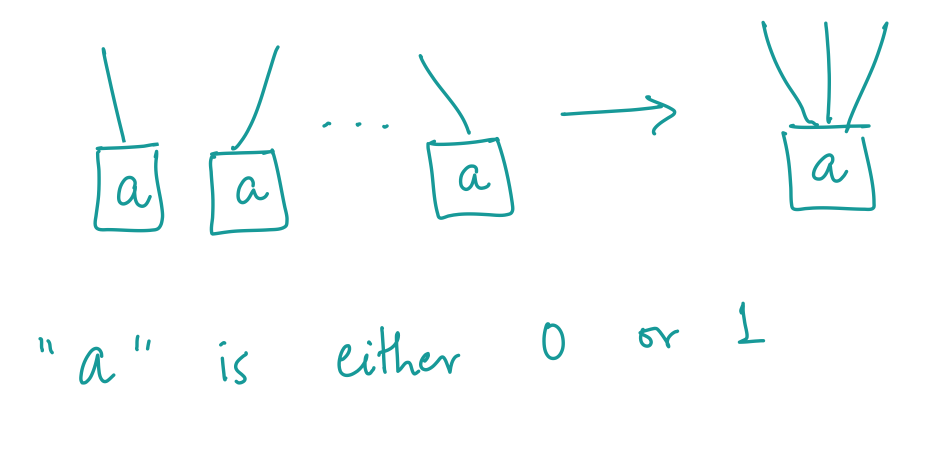 a a ... a → a
"a" is either 0 or 1